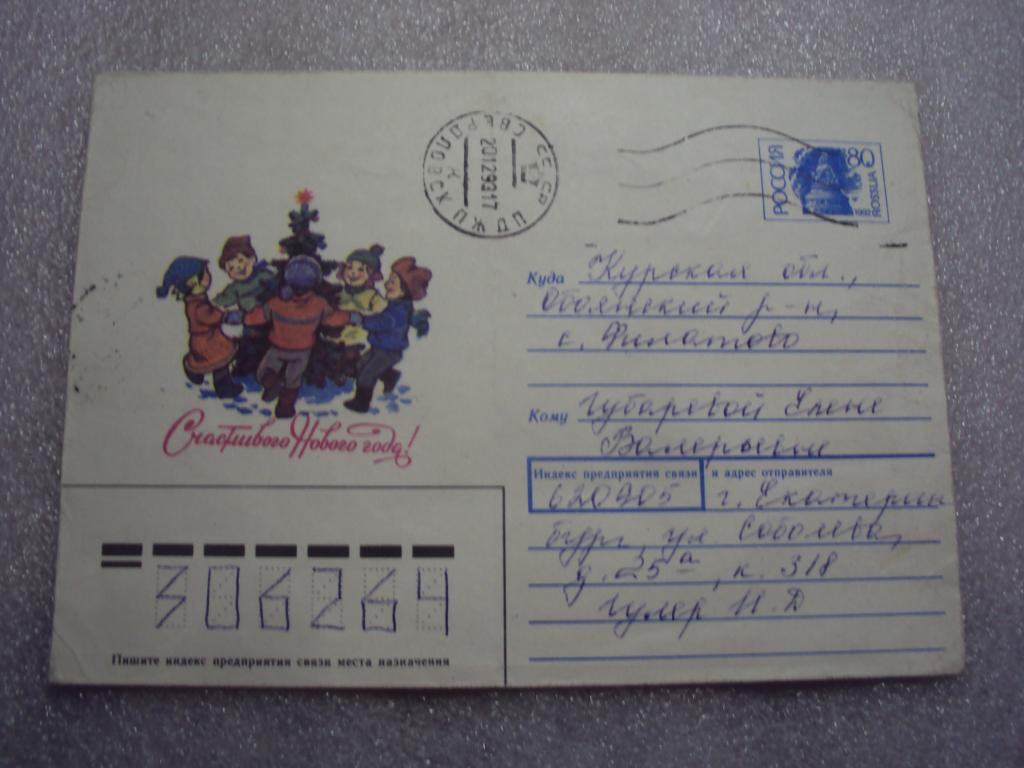 СССР ЦДЖИ
СВЕРДЛОВСК
20129317
РОССИЯ
1992 ROSSIJA
Куда Курская обл.,
Обоянский р-н,
с. Филатово
Кому Губаревой Елене
Валерьевне
Индекс предприятия связи и адрес отправителя
620905 г. Екатерин
бург, ул. Соболева,
д. 25а, к. 318
Гулер Н. Д
Счастливого Нового года!
306264
Пишите индекс предприятия связи места назначения